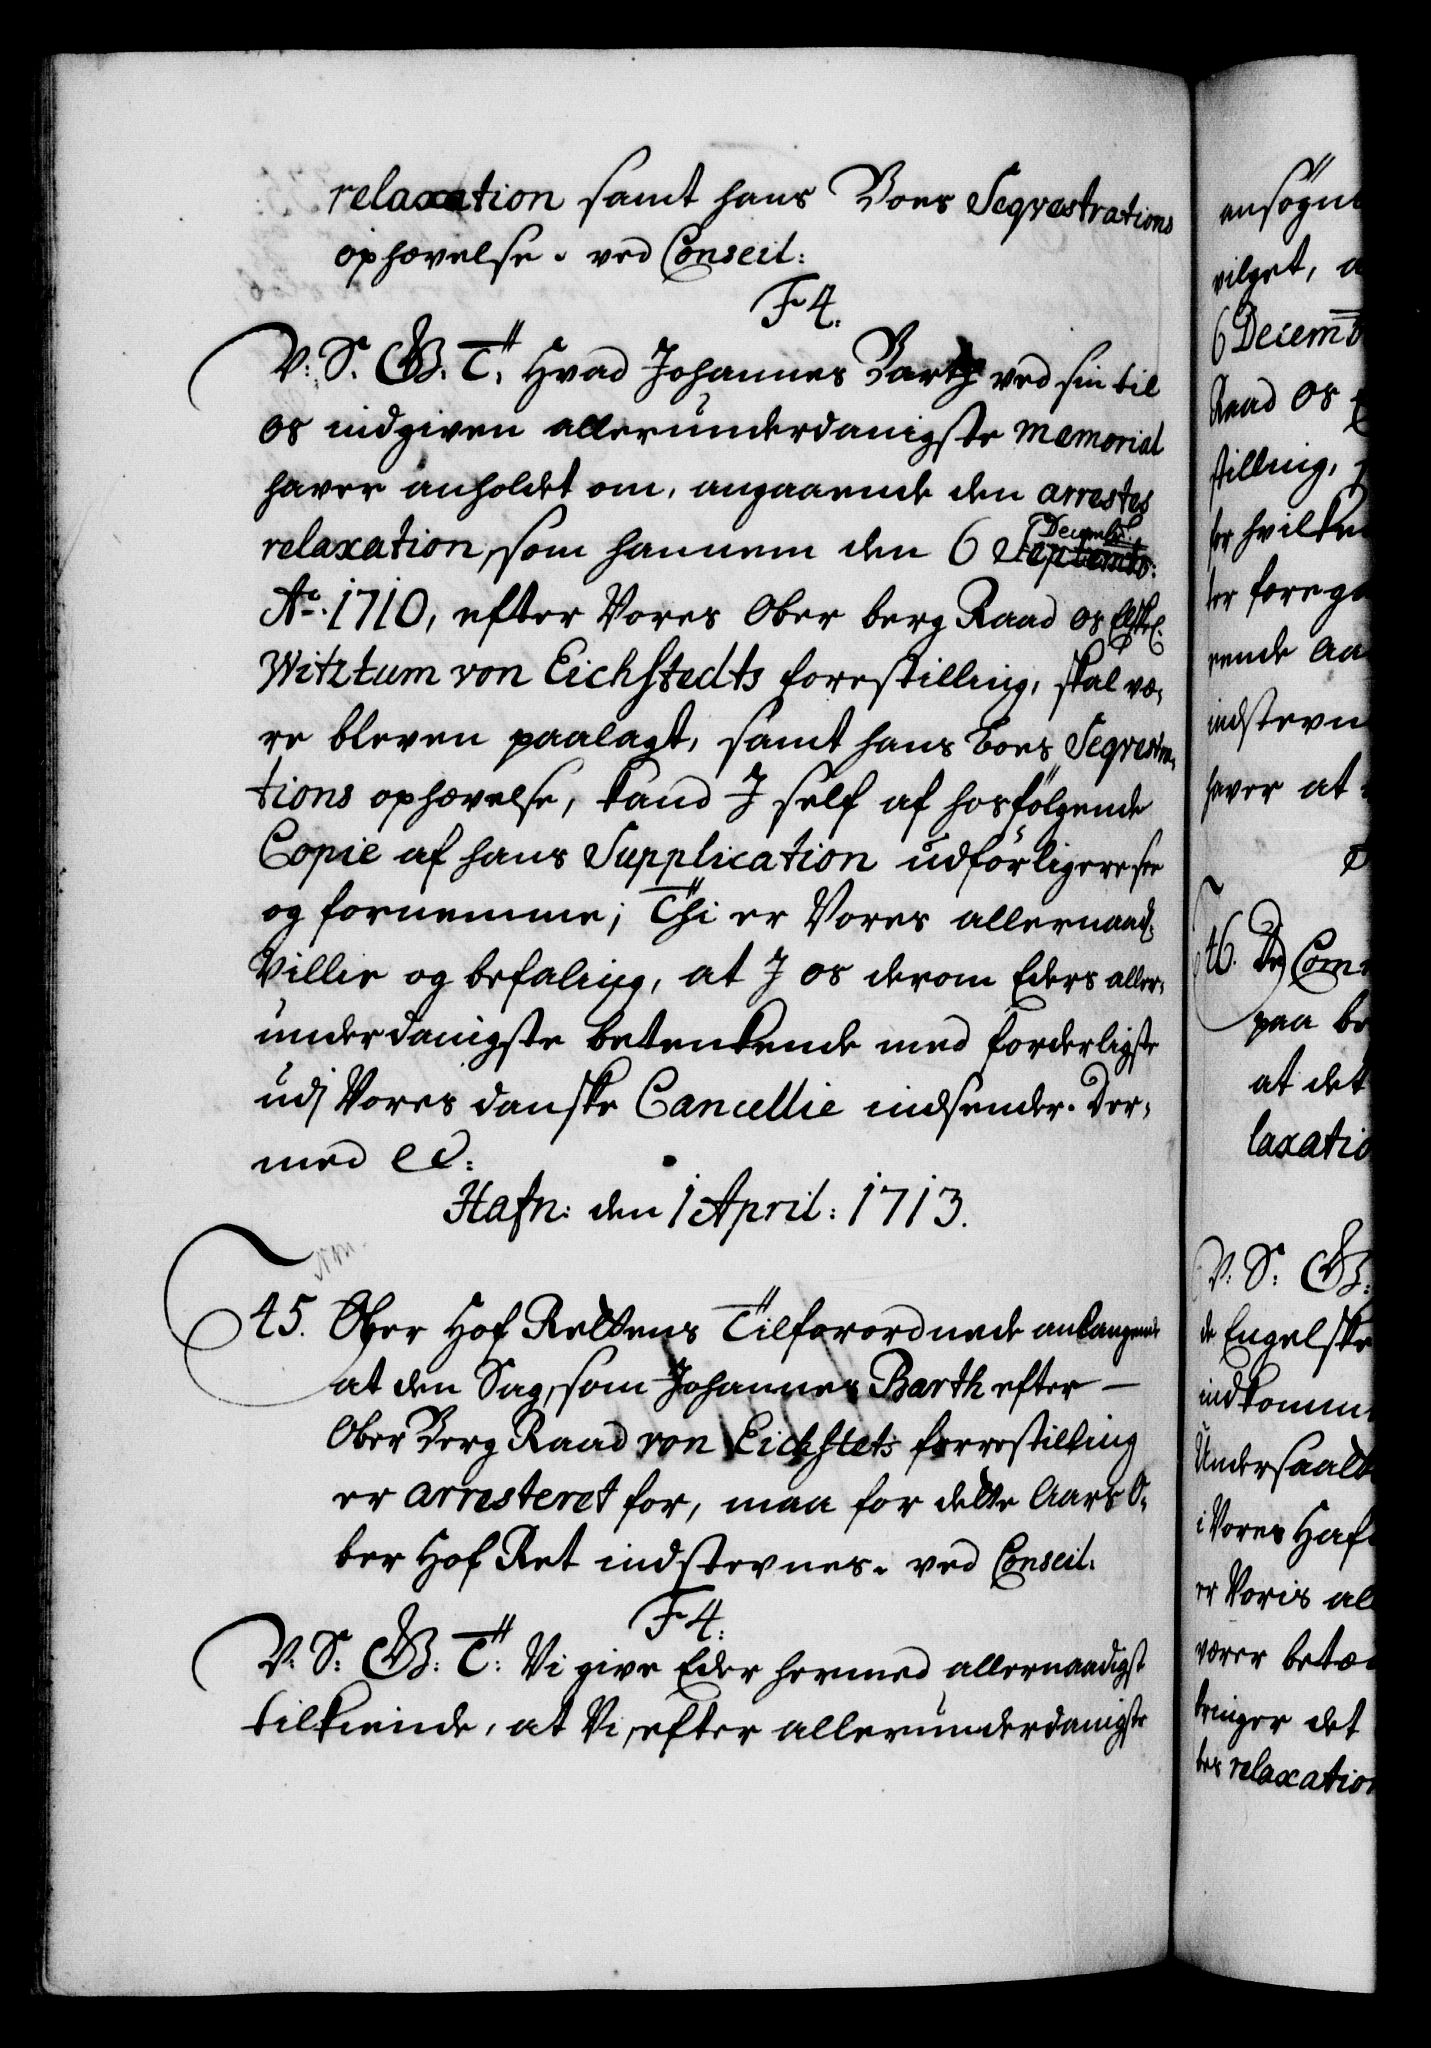 relaxation samt hans Boes Seqvestrations
ophævelse. ved Conseil:
F 4.
V: S. G. T. Hvad Johannes Barth ved sin til
os indgiven allerunderdanigste memorial
haver anholdet om, angaaende den arrestes
relaxation, som hannem den 6 Septembr: Decembr:
Ao. 1710, efter Vores Ober berg Raad os Elskel:
Witztum von Eichstedts forestilling, skal væ-
re bleven paalagt, samt hans Boes Seqvestra-
tions ophævelse, kand I self af hosfølgende
Copie af hans Supplication udførligere see
og fornemme; Thi er Vores allernaad:
Villie og befaling, at I os derom Eders aller-
underdanigste betenkende med forderligste
udj Vores danske Cancellie indsender. Der-
med ec:
Hafn: den 1 April: 1713.
45. Ober Hof Rettens Tilforordnede anlangende
at den Sag, som Johannes Barth efter -
Ober Berg Raad von Eichstets forrestilling
er arresteret for, maa for dette Aars O-
ber Hof Ret indstevnes. ved Conseil:
F 4.
V: S: G: T: Vi give Eder hermed allernaadigst
tilkiende, at Vi, efter allerunderdanigste
ansøgn
vilget, a
6 Decemb
Raad os E
stilling,
for hvilke
ter forega
rende Aa
indstevn
haver at
46. De Com
paa be
at det
laxatio
V: S: G:
de Engelske
indkomm
Undersaatt
i Vores Haf
er Voris al
værer betæ
bringer det
tes relaxation